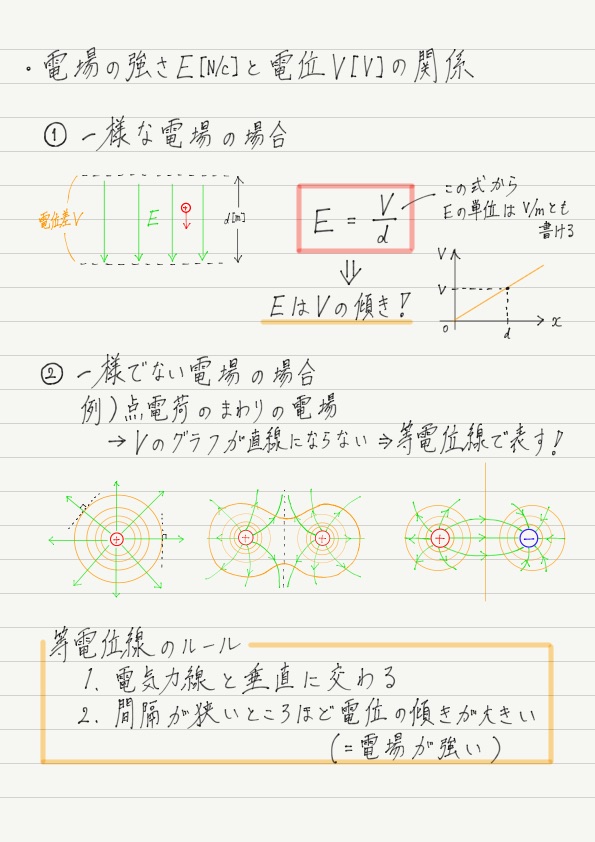 ・電場の強さE[N/C]と電位V[V]の関係
① 一様な電場の場合
電位差V
E
+
d[m]
E = V/d
この式から
Eの単位はV/mとも
書ける
⇓
EはVの傾き!
V
V
0
d
x
② 一様でない電場の場合
例)点電荷のまわりの電場
→Vのグラフが直線にならない⇒等電位線で表す!
+
+ +
+ −
等電位線のルール
1. 電気力線と垂直に交わる
2. 間隔が狭いところほど電位の傾きが大きい
(=電場が強い)